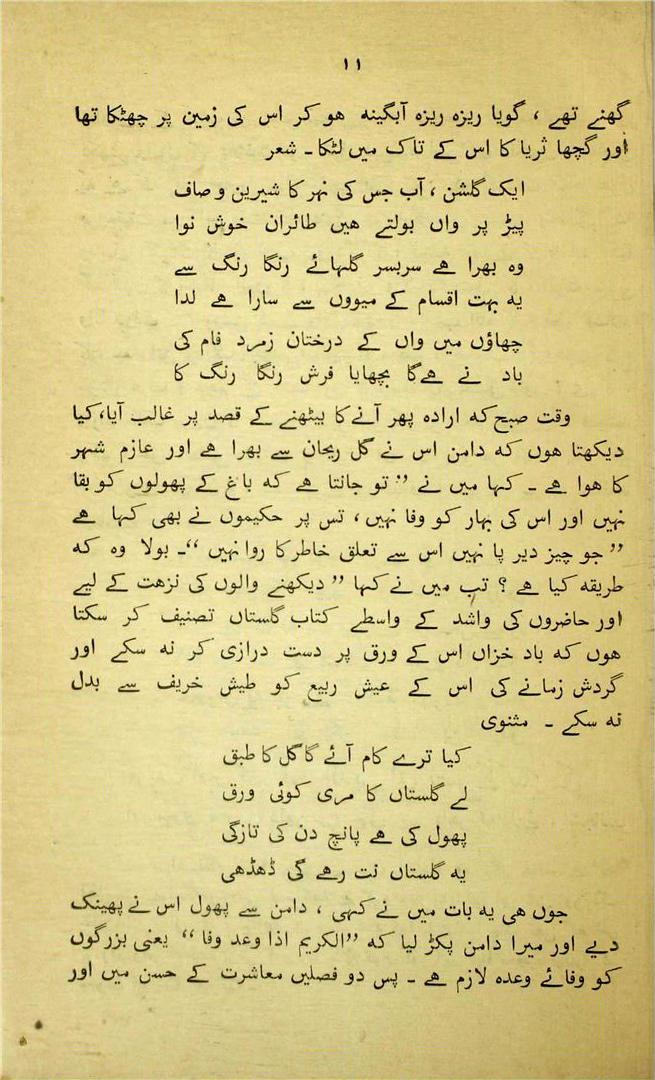 ۱۱
گھنے تھے ، گویا ریزہ ریزہ آبگینہ ھو کر اس کی زمین پر چھٹکا تھا
اور گچھا ثریا کا اس کے تاک میں لٹکا ۔ شعر
ایک گلشن ، آب جس کی نہر کا شیرین و صاف
پیڑ پر واں بولتے ھیں طائران خوش نوا
وہ بھرا ھے سربسر گلہائے رنگا رنگ سے
یہ بہت اقسام کے میووں سے سارا ھے لدا
چھاؤں میں واں کے درختان زمرد فام کی
باد نے ھےگا بچھایا فرش رنگا رنگ کا
وقت صبح کہ ارادہ پھر آنے کا بیٹھنے کے قصد پر غالب آیا، کیا
دیکھتا ھوں کہ دامن اس نے گل ریحان سے بھرا ھے اور عازم شہر
کا ھوا ھے ۔ کہا میں نے ”تو جانتا ھے کہ باغ کے پھولوں کو بقا
نہیں اور اس کی بہار کو وفا نہیں ، تس پر حکیموں نے بھی کہا ھے
”جو چیز دیر پا نہیں اس سے تعلق خاطر کا روا نہیں“۔ بولا وہ کہ
طریقہ کیا ھے ؟ تب میں نے کہا ”دیکھنے والوں کی نزھت کے لیے
اور حاضروں کی واشد کے واسطے کتاب گلستاں تصنیف کر سکتا
ھوں کہ باد خزاں اس کے ورق پر دست درازی کر نہ سکے اور
گردش زمانے کی اس کے عیش ربیع کو طیش خریف سے بدل
نہ سکے ۔ مثنوی
کیا ترے کام آئے گا گل کا طبق
لے گلستاں کا مری کوئی ورق
پھول کی ھے پانچ دن کی تازگی
یہ گلستاں نت رھے گی ڈھڈھی
جوں ھی یہ بات میں نے کہی ، دامن سے پھول اس نے پھینک
دیے اور میرا دامن پکڑ لیا کہ ”الکریم اذا وعد وفا“ یعنی بزرگوں
کو وفائے وعدہ لازم ھے ۔ پس دو فصلیں معاشرت کے حسن میں اور